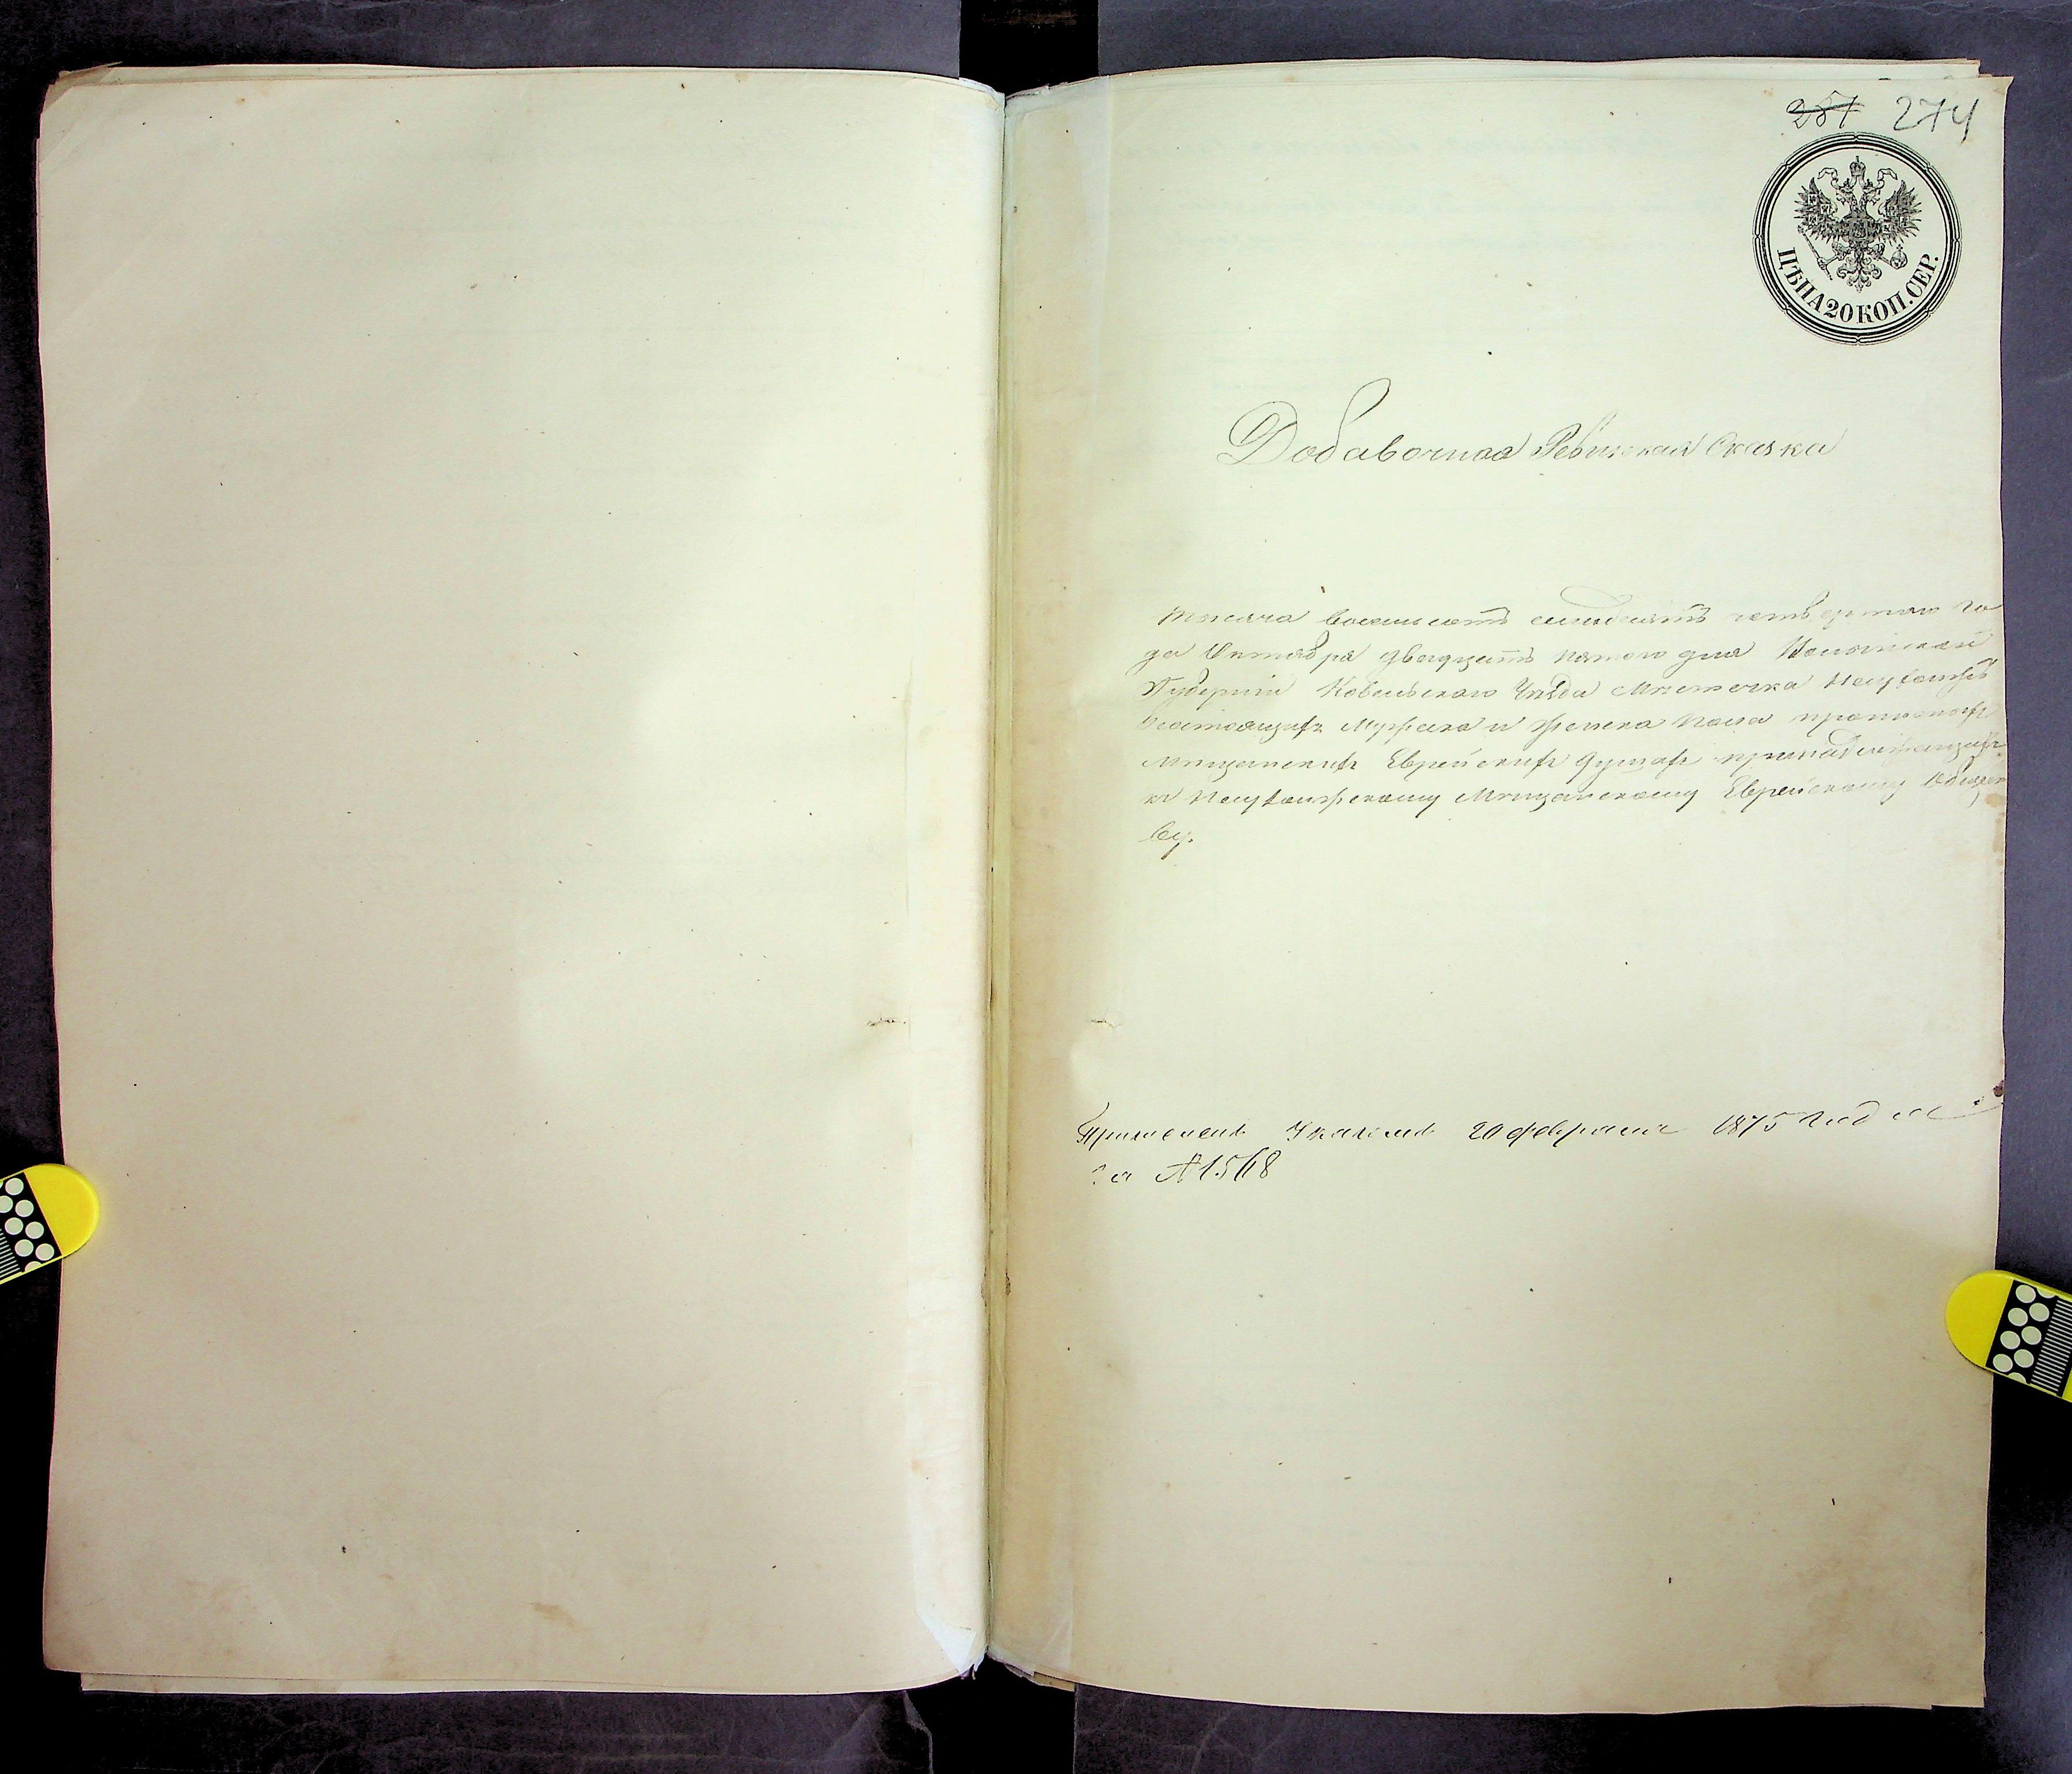 251 274
ЦѢНА 20 КОП. СЕР.
Добавочная Ревизская Сказка
Тысяча восемьсотъ семьдесятъ четвертаго го
да Октября двадцать пятого дня Волынской
Губерніи Ковельскаго Уѣзда Мѣстечка Несухоижъ
состоящихъ Мужеска и Женска Пола
Мѣщанскихъ Еврейскихъ Душахъ принадлежащихъ
къ Несухоижскому Мѣщанскому Еврейскому Общест
ву.
Указомъ 20 февраля 1875 года
за № 1568